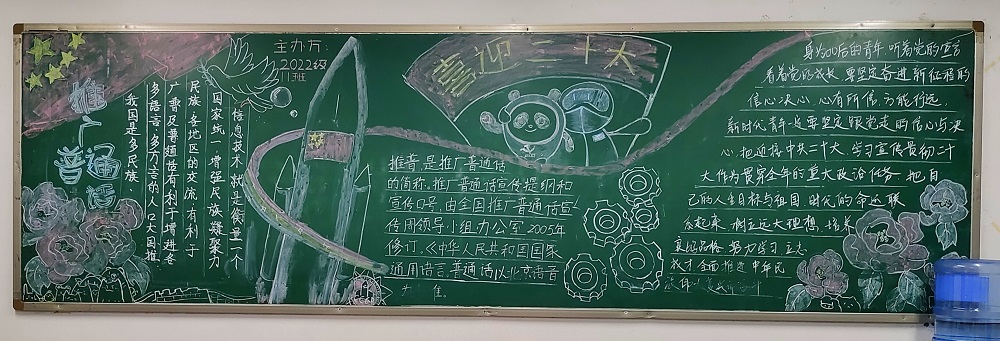 推广
普通话
我国是多民族、
多語言、多方言的人口大国推
广普及普通话有利于增进各
民族各地区的交流有利于
国家统一增强民族凝聚力
信息技术
就是衡量一个
主办方:
2022级
11班
喜迎二十大
推普是推广普通话
的简称。推广普通话宣传提纲和
宣传口号，由全国推广普通话宣
传周领导小组办公室2005年
修订。《中华人民共和国国家
通用语言,普通话以北京语音
为
准。
身为00后的青年,听着党的宣言
看着党的成长,要坚定奋进新征程的
信心决心,心有所信,方能行远,
新时代青年一定要坚定跟党走的信心与决
心,把迎接中共二十大,学习宣传贯彻二十
大作为贯穿全年的重大政治任务,把自
己的人生目标与祖国时代的命运联
系起来,树立远大理想,培养
良好品格,努力学习,立志
成才,全面推进中华民